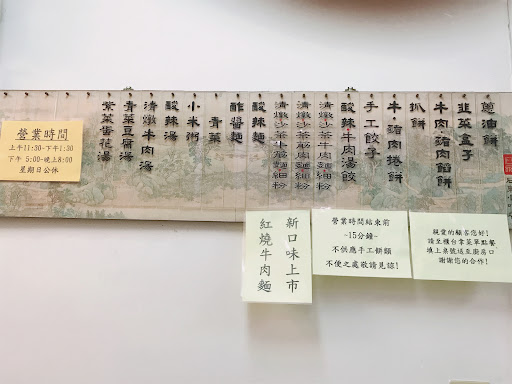 蔥油餅
韭菜盒子
牛肉·豬肉餡餅
抓餅
牛·豬肉捲餅
手工餃子
酸辣牛肉湯餃
清燉沙茶牛肉麵細粉
清燉沙茶牛筋麵細粉
清燉沙茶半筋麵細粉
酸辣麵
酢醬麵
青菜
小米粥
酸辣湯
清燉牛肉湯
青菜豆腐湯
紫菜蛋花湯
營業時間
上午11:30-下午1:30
下午 5:00-晚上8:00
星期日公休
新口味上市
紅燒牛肉麵
營業時間結束前
-15分鐘-
不供應手工餅類
不便之處敬請見諒!
親愛的顧客您好!
請至櫃台拿菜單點餐
填上桌號送至廚房口
謝謝您的合作!